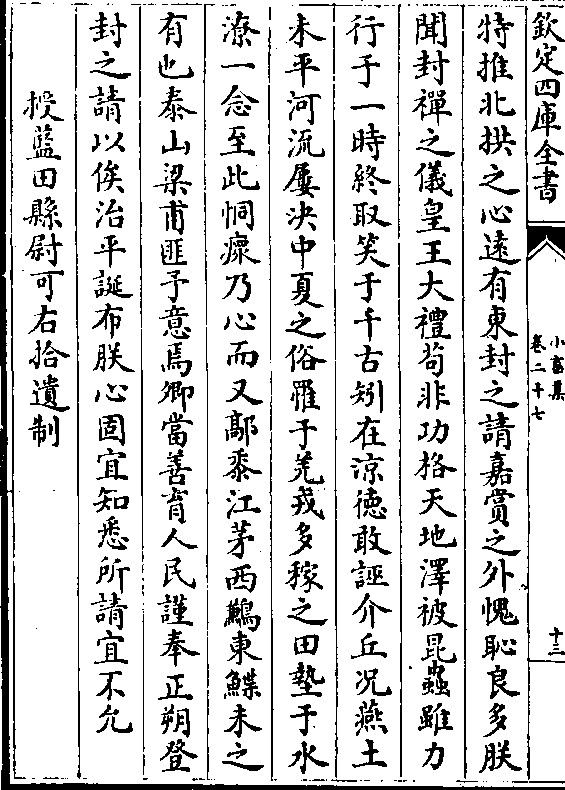 欽定四庫全書
小畜集
卷二十七
十三
特推北拱之心遠有東封之請嘉賞之外愧恥良多朕
聞封禪之儀皇王大禮苟非功格天地澤被昆蟲雖力
行于一時終取笑于千古矧在涼徳敢誣介丘况燕土
未平河流屢决中夏之俗罹于羌戎多稼之田墊于水
潦一念至此恫瘝乃心而又鄗黍江茅西鶼東鰈未之
有也泰山梁甫匪予意焉卿當善育人民謹奉正朔登
封之請以俟治平誕布朕心固宜知悉所請宜不允
授藍田縣尉可右拾遺制